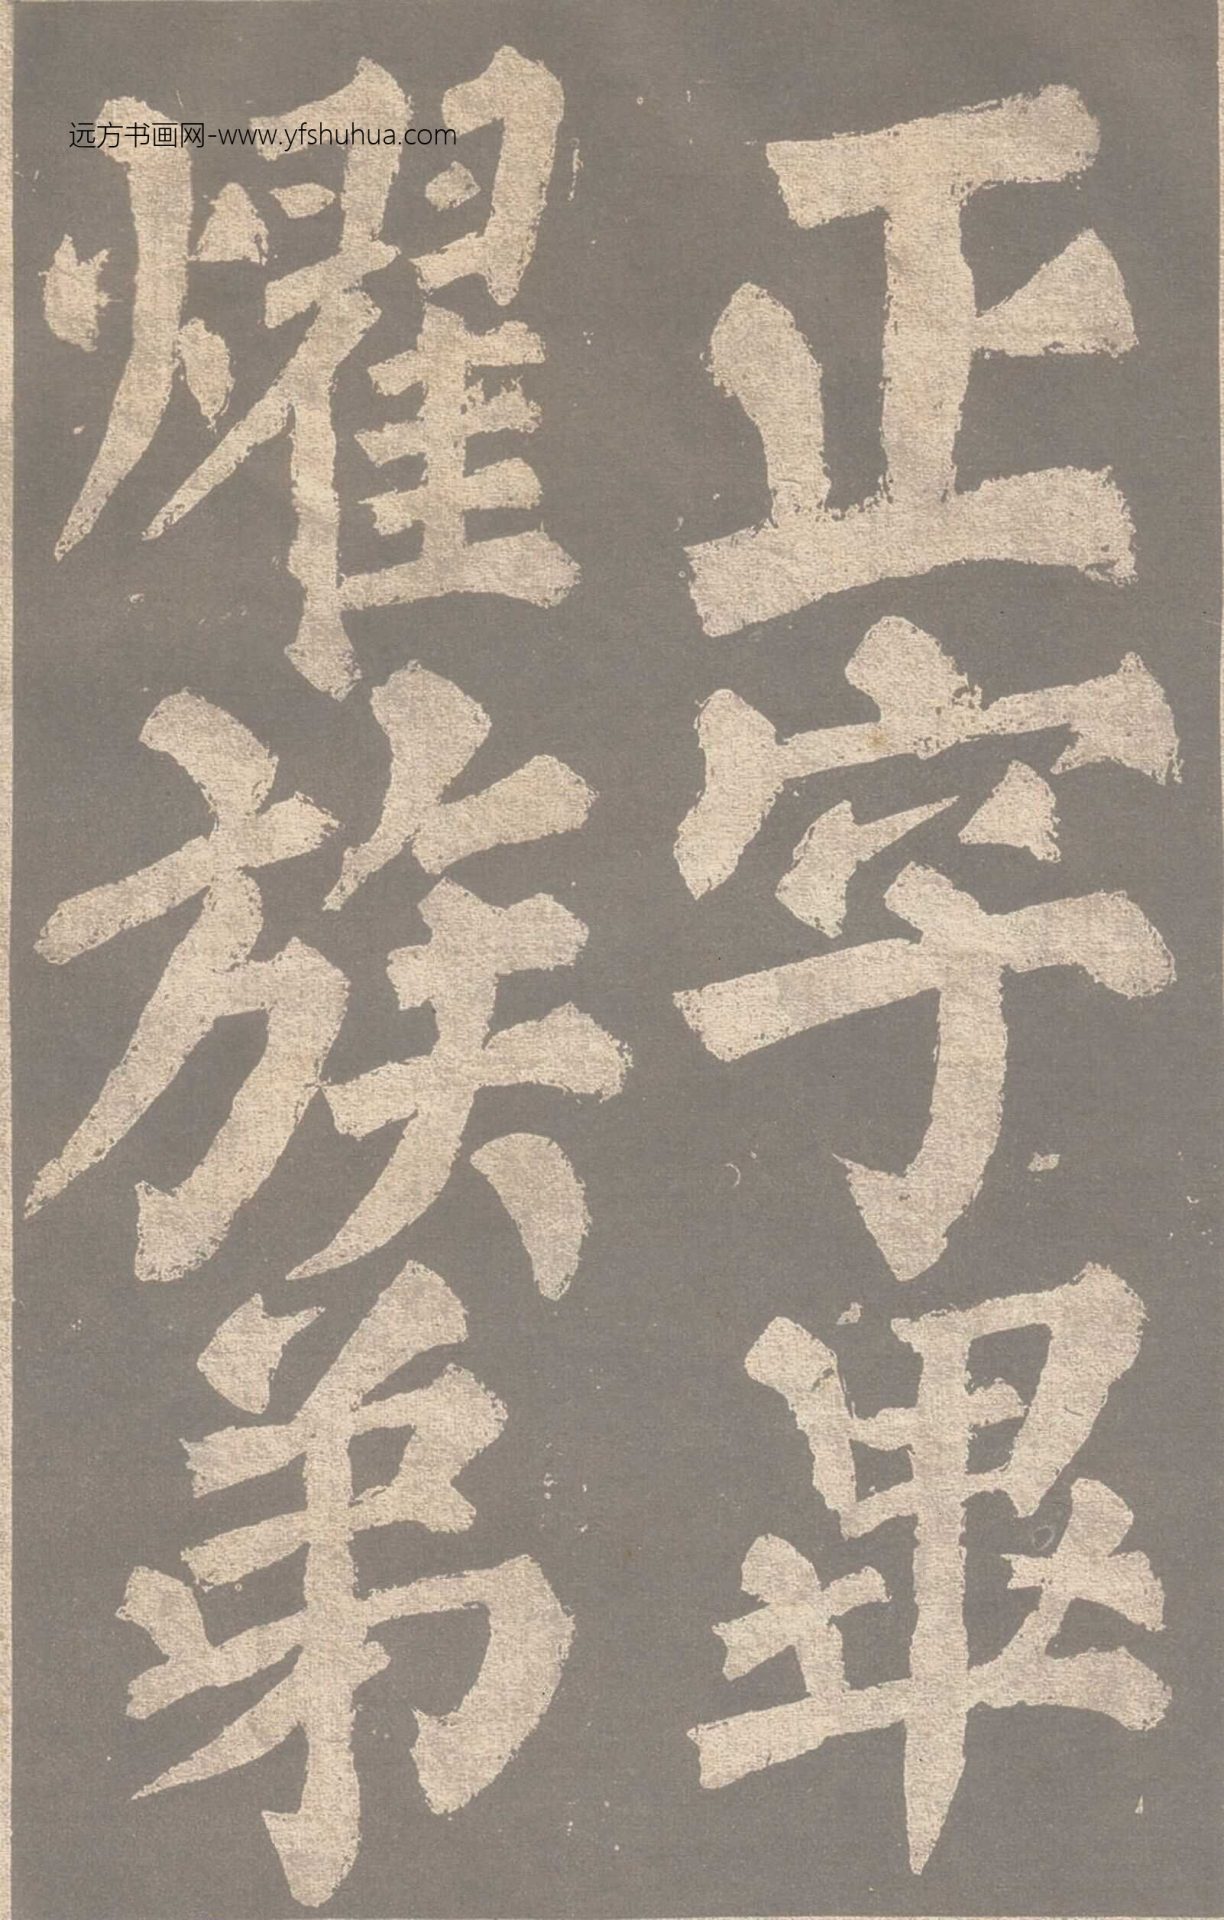 正字畢
耀族弟
远方书画网-www.yfshuhua.com